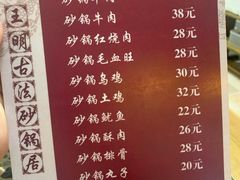 王明古法砂锅居
砂锅牛肉 38元
砂锅红烧肉 28元
砂锅毛血旺 28元
砂锅乌鸡 30元
砂锅土鸡 32元
砂锅鱿鱼 22元
砂锅酥肉 26元
砂锅排骨 28元
砂锅丸子 20元